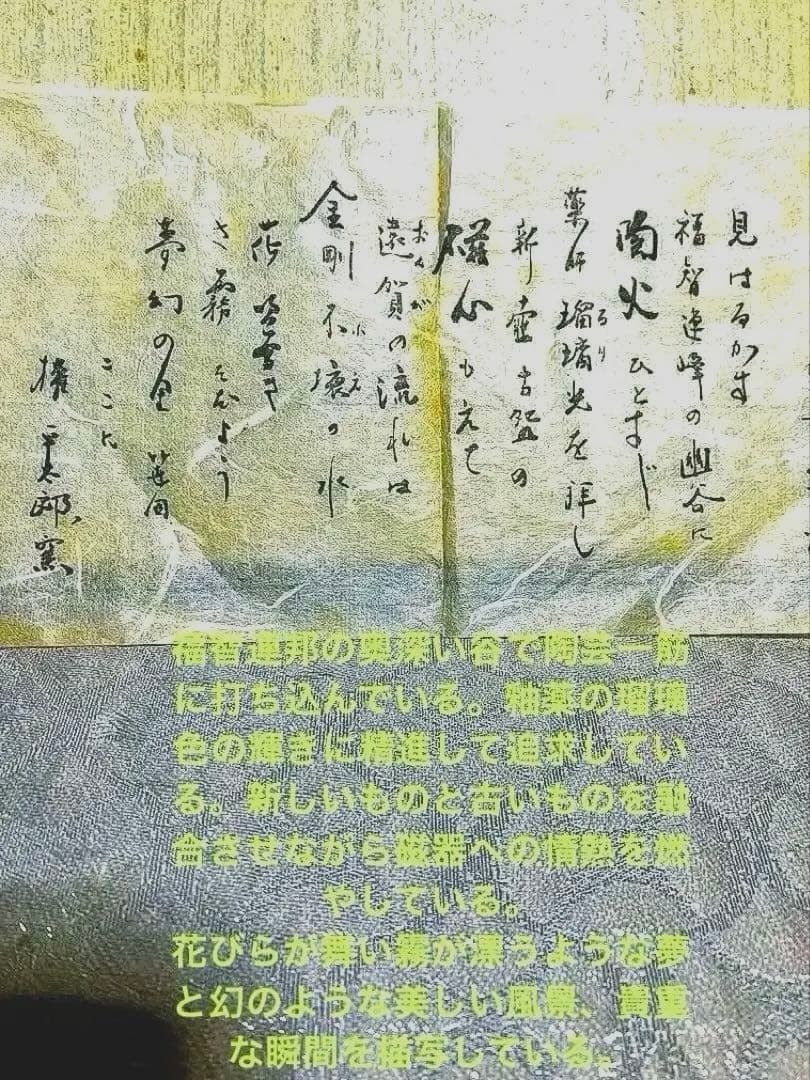 見はるかす
福智連峰の幽谷に
陶火ひとすじ
薬師瑠璃光を拝し
るり
新壷古盌の
磁心もえて
遠賀の流れは
おんが
金剛不壊の水
ふえ
花吹雪き
さ霧たゞよう
夢幻の里
ここに
窯
福智連邦の奥深い谷で陶芸一筋
に打ち込んでいる。釉薬の瑠璃
色の輝きに精進して追求してい
る。新しいものと古いものを融
合させながら磁器への情熱を燃
やしている。
花びらが舞い霧が漂うような夢
と幻のような美しい風景、貴重
な瞬間を描写している。